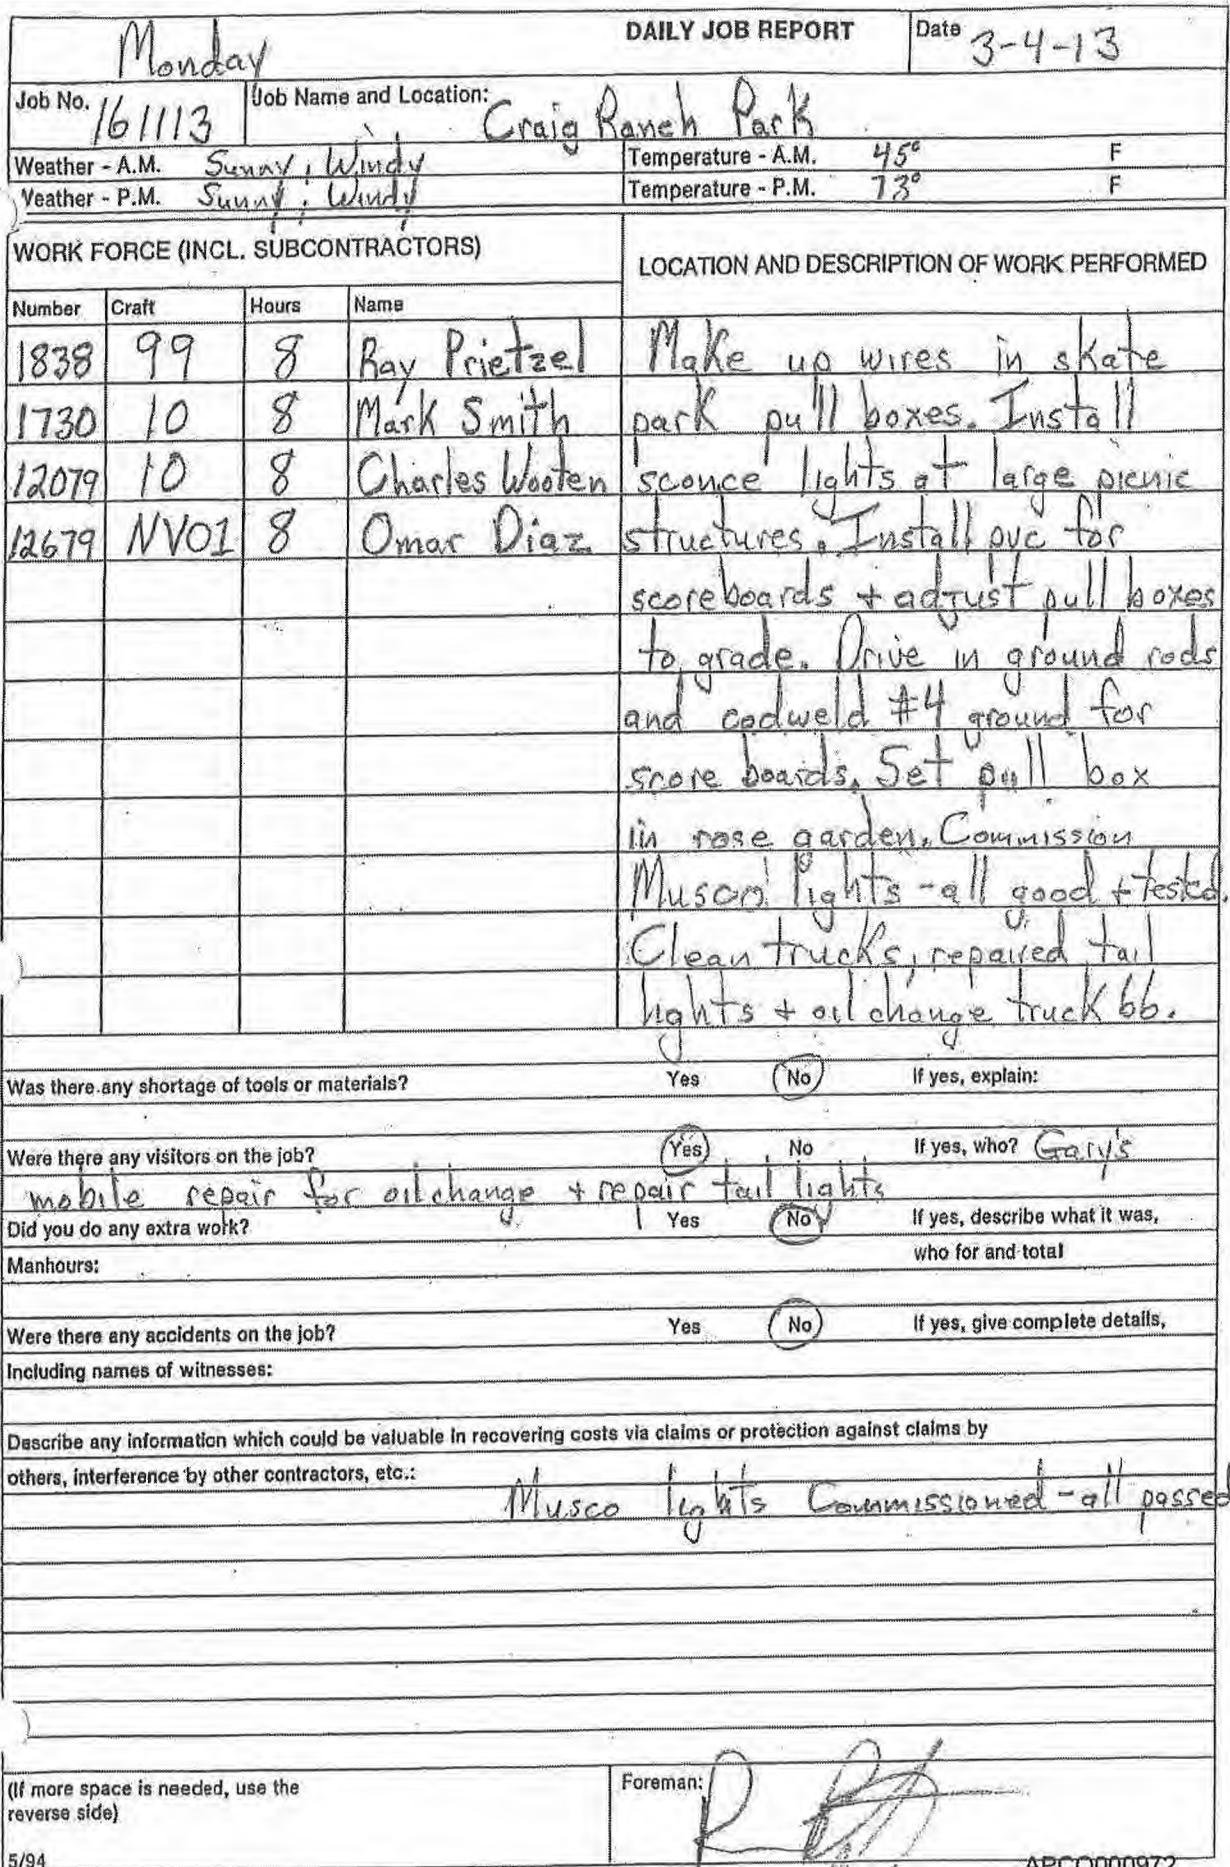 Monday
DAILY JOB REPORT
Date 3-4-13
Job No. 161113
Job Name and Location: Craig Ranch Park
Weather - A.M. Sunny, Windy
Temperature - A.M. 45° F
Weather - P.M. Sunny, Windy
Temperature - P.M. 73° F
WORK FORCE (INCL. SUBCONTRACTORS)
LOCATION AND DESCRIPTION OF WORK PERFORMED
Number Craft Hours Name
1838 99 8 Ray Prietzel Make up wires in skate
1730 10 8 Mark Smith park pull boxes. Install
12079 10 8 Charles Wooten sconce lights at large picnic
12679 NV01 8 Omar Diaz structures. Install pvc for
scoreboards + adjust pull boxes
to grade. Drive in ground rods
and cadweld #4 ground for
score boards. Set pull box
in rose garden. Commission
Musco lights - all good + tested.
Clean trucks, repaired tail
lights + oil change truck 66.
Was there any shortage of tools or materials? Yes No If yes, explain:
Were there any visitors on the job? Yes No If yes, who? Gary's
mobile repair for oil change + repair tail lights
Did you do any extra work? Yes No If yes, describe what it was,
who for and total
Manhours:
Were there any accidents on the job? Yes No If yes, give complete details,
Including names of witnesses:
Describe any information which could be valuable in recovering costs via claims or protection against claims by
others, interference by other contractors, etc.:
Musco lights Commissioned - all passed
(If more space is needed, use the
reverse side)
Foreman:
5/94
APCO000972